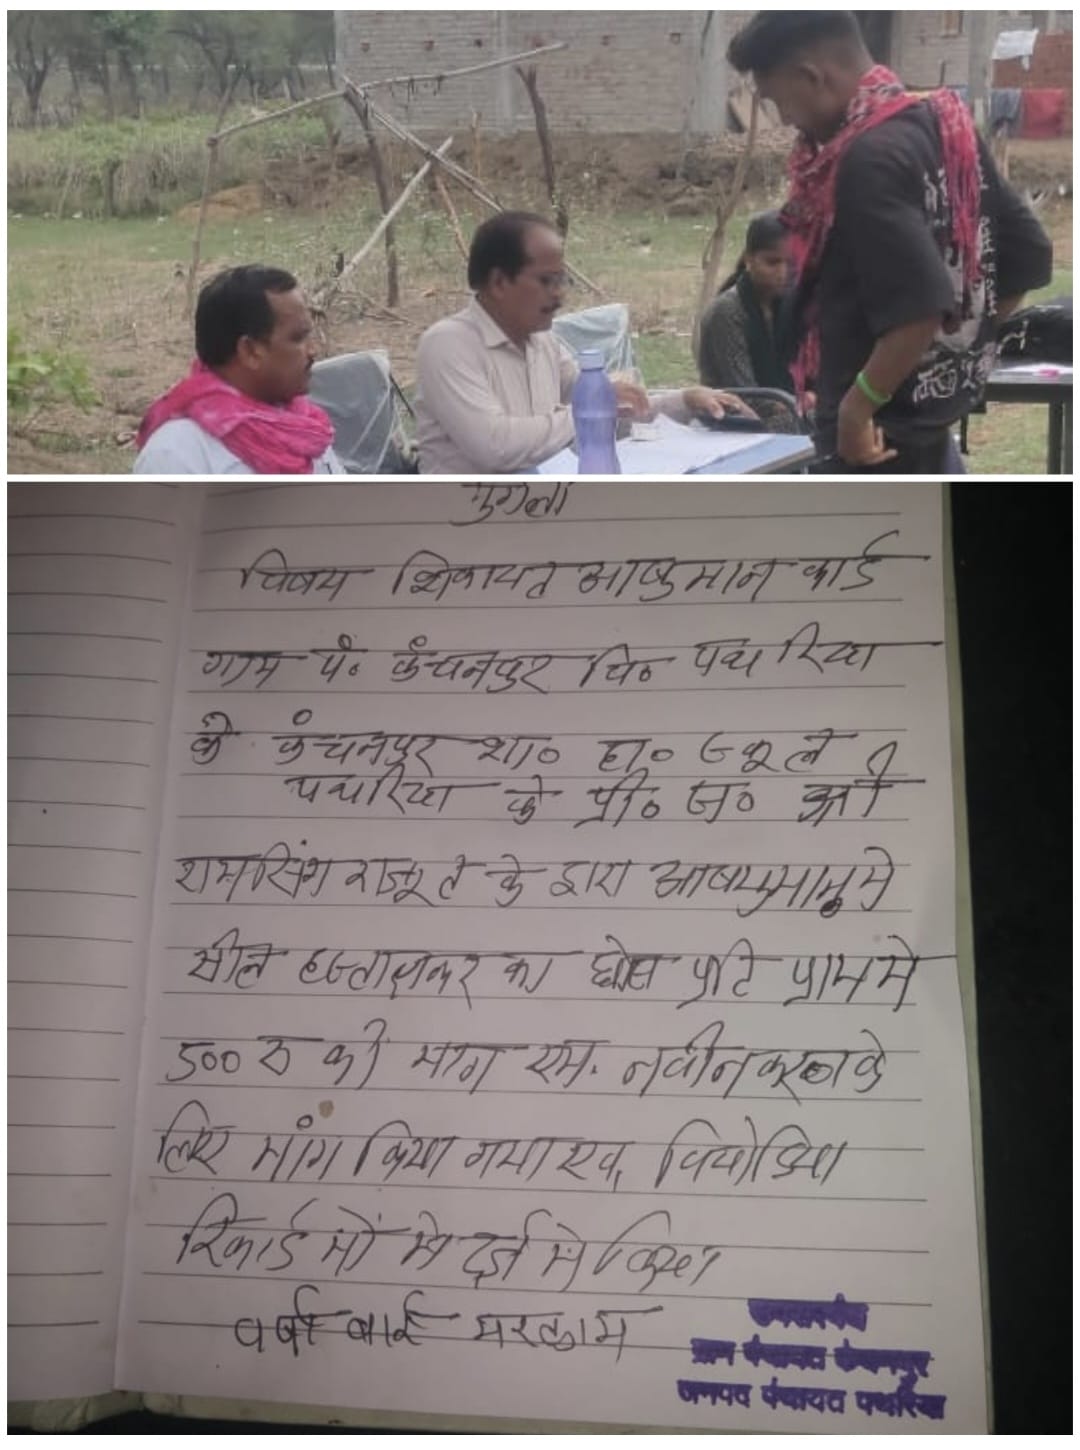 मुंगेली
विषय शिकायत आष्युमान कार्ड
ग्राम पं. कंचनपुर वि० पथरिया
के कंचनपुर शा० हा० स्कूल
पथरिया के प्री० ज० श्री
रामसिंग राजपूत के द्वारा आषयुमान मे
सील हस्ताक्षर का प्रति
500 रु की मांग एम. नवीन के
लिए मांग किया गया एवं विडियो
रिकार्ड मों मे दर्ज मे किया
वर्षा बाई मरकाम
उपसरपंच
ग्राम पंचायत कंचनपुर
जनपद पंचायत पथरिया